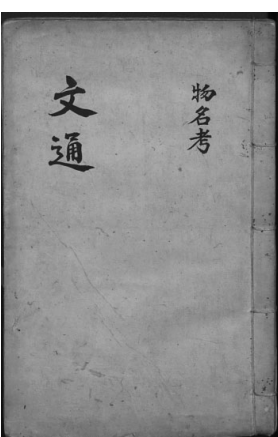 物名考
文通